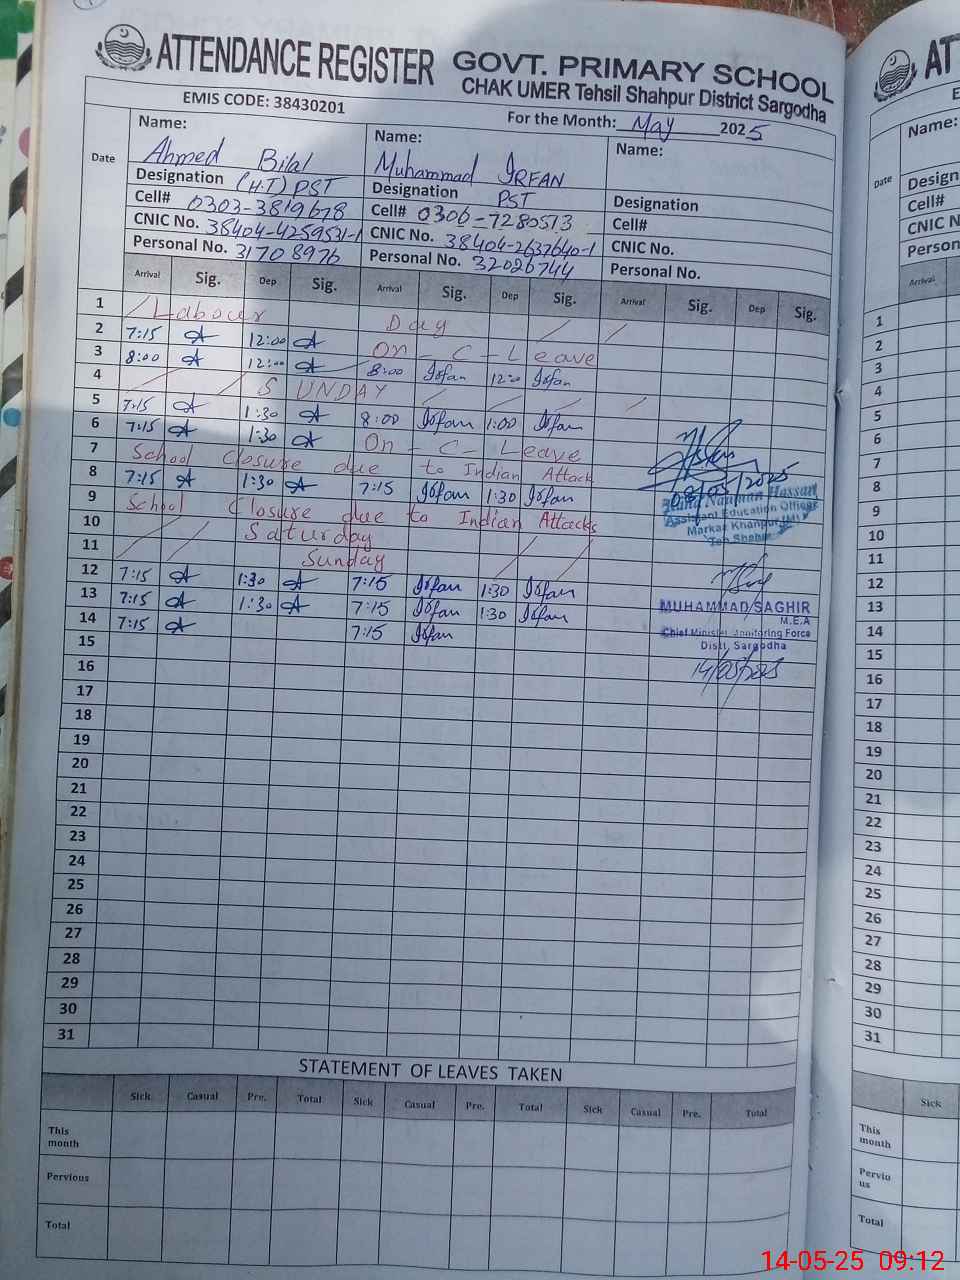 ATTENDANCE REGISTER GOVT. PRIMARY SCHOOL
CHAK UMER Tehsil Shahpur District Sargodha
EMIS CODE: 38430201 For the Month: May 2025
Date Name: Ahmed Bilal Name: Muhammad IRFAN Name:
Designation (H.T) PST Designation PST Designation
Cell# 0303-3819678 Cell# 0306-7280513 Cell#
CNIC No. 38404-4259531-1 CNIC No. 38404-2637640-1 CNIC No.
Personal No. 31708976 Personal No. 32026744 Personal No.
Arrival Sig. Dep Sig. Arrival Sig. Dep Sig. Arrival Sig. Dep Sig.
1 Labour Day
2 7:15 A 12:00 A On - C - Leave
3 8:00 A 12:00 A 8:00 Irfan 12:0 Irfan
4 SUNDAY
5 7:15 A 1:30 A 8:00 Irfan 1:00 Irfan
6 7:15 A 1:30 A On - C - Leave
7 School Closure due to Indian Attack
8 7:15 A 1:30 A 7:15 Irfan 1:30 Irfan
9 School Closure due to Indian Attacks
10 Saturday
11 Sunday
12 7:15 A 1:30 A 7:15 Irfan 1:30 Irfan
13 7:15 A 1:30 A 7:15 Irfan 1:30 Irfan
14 7:15 A 7:15 Irfan
15
16
17
18
19
20
21
22
23
24
25
26
27
28
29
30
31
08/05/2025
Rana Nauman Hassan
Assistant Education Officer
Markaz Khanpur
Teh Shahpur
MUHAMMAD SAGHIR
M.E.A
Chief Minister Monitoring Force
Distt. Sargodha
14/05/2025
STATEMENT OF LEAVES TAKEN
Sick Casual Pre. Total Sick Casual Pre. Total Sick Casual Pre. Total
This month
Pervious
Total
AT
Name:
Date
Design
Cell#
CNIC N
Person
Arrival
1
2
3
4
5
6
7
8
9
10
11
12
13
14
15
16
17
18
19
20
21
22
23
24
25
26
27
28
29
30
31
Sick
This month
Perviou us
Total
14-05-25 09:12